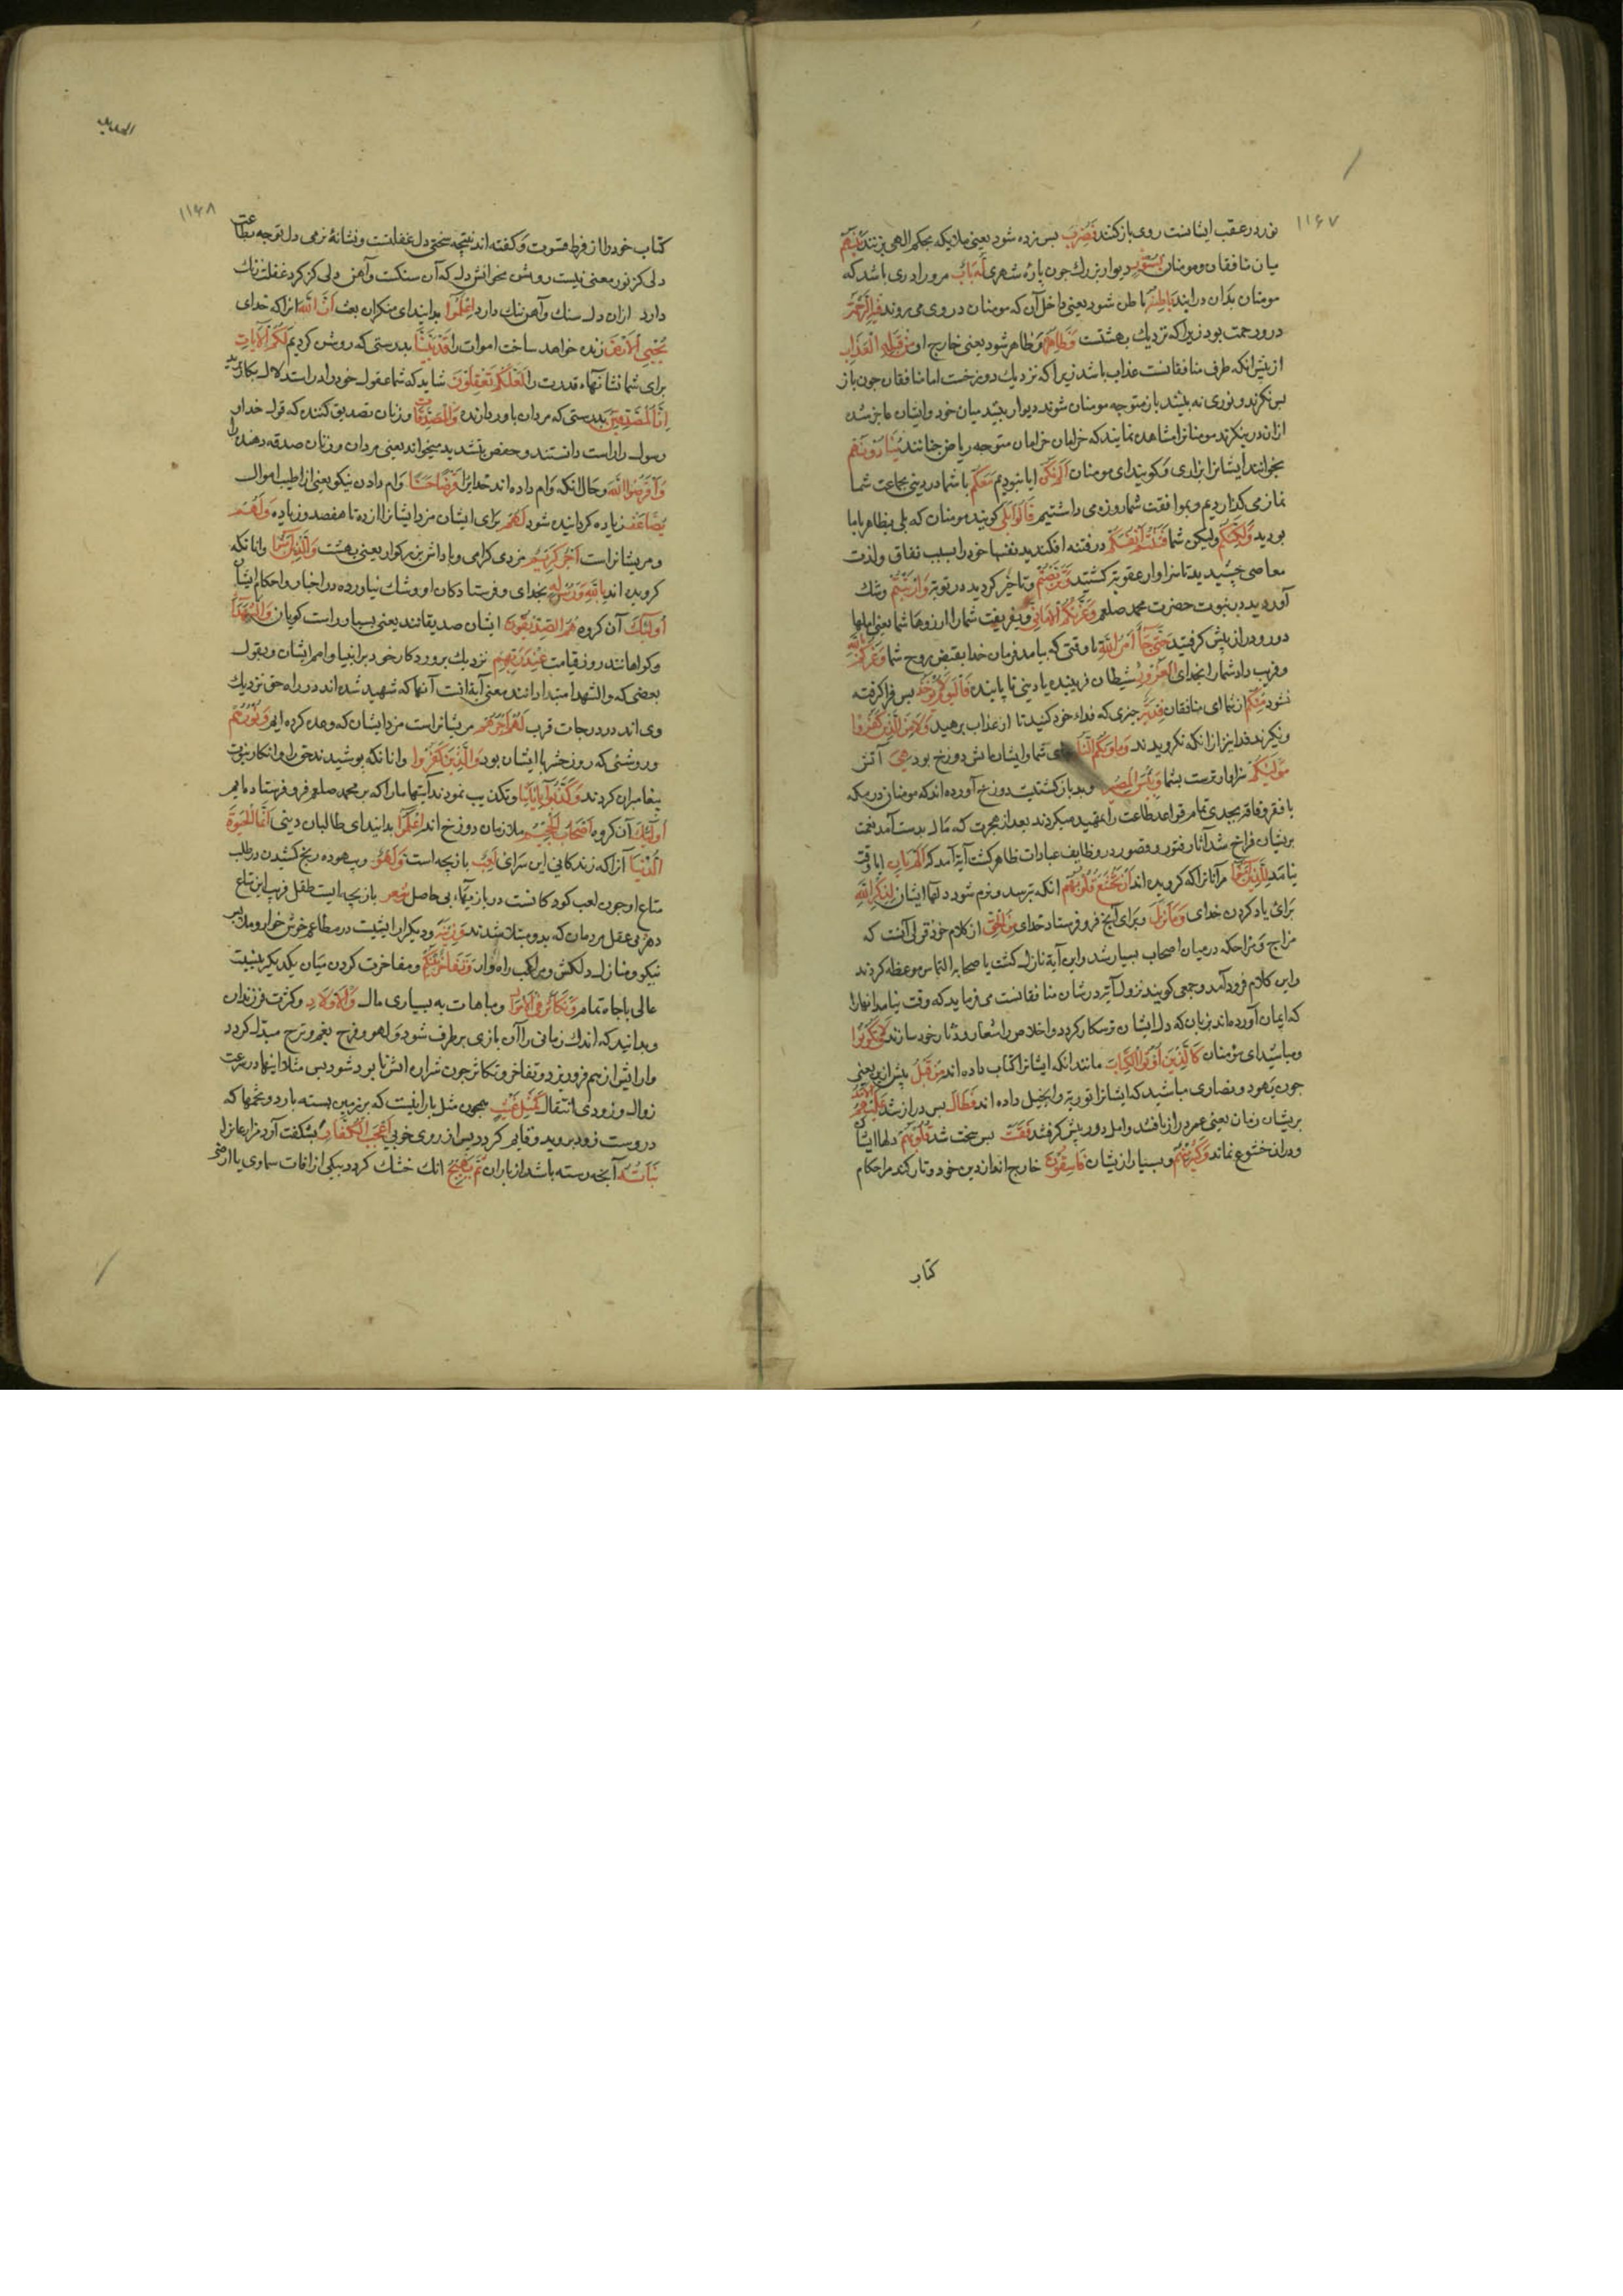 ١١۶٧
نور در عقب ایشانست روی باز کنند فَضُرِبَ پس زده شود یعنی ملایکه بحکم الهی بزنند بَیْنَهُمْ
میان منافقان و مومنان بِسُورٍ دیوار بزرك چون بارهٔ شهری لَهُ بَابٌ مرو را دری باشد که
مومنان بدان درایند بَاطِنُهُ باطن شود یعنی داخل آن که مومنان در وی می روند فِیهِ الرَّحْمَةُ
درو رحمت بود زیرا که نزدیك بهشتست وَظَاهِرُهُ و ظاهر شود یعنی خارج او مِنْ قِبَلِهِ الْعَذَابُ
از پیش انکه طرف منافقانست عذاب باشد زیرا که نزدیك دوزخست اما منافقان چون باز
پس نکرند و نوری نه بینند باز متوجه مومنان شوند دیوار بینند میان خود و ایشان حاجز شده
ازان در بنکرند مومنانرا مشاهده نمایند که خرامان خرامان متوجه ریاض جنانند یُنَادُونَهُمْ
بخوانند ایشانرا بزاری و کویند ای مومنان اَلَمْ نَکُنْ ایا نبودیم مَعَکُمْ با شما در دینی بجماعت شما
نماز می کذاردیم و بموافقت شما روزه می داشتیم قَالُوا بَلَی کویند مومنان که بلی بظاهر با ما
بودید وَلٰکِنَّکُمْ ولیکن شما فَتَنْتُمْ اَنْفُسَکُمْ در فتنه افکندید نفسهاخود را بسبب نفاق و لذت
معاصی چشیدید تا سزاوار عقوبة کشتید وَتَرَبَّصْتُمْ و تاخیر کردید در توبه وَارْتَبْتُمْ و شك
آوردید در نبوت حضرت محمد صلعم وَغَرَّتْکُمُ الْاَمَانِیُّ و بفریفت شما را ارزوها شما یعنی املها
دور و دراز پیش کرفتید حَتّٰی جَآءَ اَمْرُ اللّٰهِ تا وقتی که بیامد فرمان خدا بقبض روح شما وَغَرَّکُمْ بِاللّٰهِ
و فریب داد شما را بخدای الْغَرُورُ شیطان فریبنده یا دینی نا پاینده فَالْیَوْمَ لَا یُؤْخَذُ پس فرا کرفته
نشود مِنْکُمْ از شما ای منافقان فِدْیَةٌ چیزی که فداء خود کنید تا از عذاب برهید وَلَا مِنَ الَّذِینَ کَفَرُوا
و نکیرند فدا نیز از انکه نکرویدند وَمَأْوٰیکُمُ النَّارُ جای شما و ایشان آتش دوزخ بود هِیَ آتش
مَوْلٰیکُمْ سزاوارترست بشما وَبِئْسَ الْمَصِیرُ و بد باز کشتیست دوزخ آورده اند که مومنان در مکه
با فقر و فاقه بجدی تمام قواعد طاعت را تمهید میکردند بعد از هجرت که مال بدست آمد نعمت
بریشان فراخ شد آثار فتور و قصور در وظایف عبادات ظاهر کشت آیة آمد که اَلَمْ یَأْنِ ایا وقت
نیامد لِلَّذِینَ اٰمَنُوا مر آنانرا که کرویده اند اَنْ تَخْشَعَ قُلُوبُهُمْ انکه بترسد و نرم شود دلها ایشان لِذِکْرِ اللّٰهِ
برای یاد کردن خدای وَمَا نَزَلَ و برای آنچ فرو فرستاد خدای مِنَ الْحَقِّ از کلام خود قولی آنست که
مزاج و مزاحکه در میان اصحاب بسیار شد و این آیة نازل کشت یا صحابه التماس موعظه کردند
و این کلام فرود آمد و جمعی کویند نزول آیة در شان منافقانست می فرماید که وقت نیامد انهارا
که ایمان آورده اند بزبان که دل ایشان ترسکار کردد و اخلاص را شعار و دثار خود سازند وَلَا یَکُونُوا
و مباشید ای مؤمنان کَالَّذِینَ اُوتُوا الْکِتَابَ مانند انکه ایشانرا کتاب داده اند مِنْ قَبْلُ پیش ازین یعنی
چون یهود و نصاری مباشید که ایشانرا توریة و انجیل داده اند فَطَالَ پس دراز شد عَلَیْهِمُ الْاَمَدُ
بریشان زمان یعنی عمر دراز یافتند و امل دور پیش کرفتند فَقَسَتْ پس سخت شد قُلُوبُهُمْ دلها ایشان
و دران خشوع نماند وَکَثِیرٌ مِنْهُمْ و بسیار از یشان فَاسِقُونَ خارج اند از دین خود و تارکند مر احکام
کتاب
الحدید
١١۶٨
کتاب خود را از فرط قسوت و کفته اند نتیجه سختی دل غفلتست و نشانهٔ نرمی دل توجه بطاعت
دلی کز نور معنی نیست روشن مخوانش دل که آن سنکست و آهن دلی کز کرد غفلت زنك
دارد ازان دل سنك و آهن ننك دارد اِعْلَمُوا بدانید ای منکران بعث اَنَّ اللّٰهَ آنرا که خدای
یُحْیِی الْاَرْضَ زنده خواهد ساخت اموات را قَدْ بَیَّنَّا بدرستی که روشن کردیم لَکُمُ الْاٰیَاتِ
برای شما نشانهاء قدرت را لَعَلَّکُمْ تَعْقِلُونَ شاید که شما عقول خود را در استدلال بکار برید
اِنَّ الْمُصَّدِّقِینَ بدرستی که مردان باور دارنده وَالْمُصَّدِّقَاتِ و زنان تصدیق کننده که قول خدا و
رسول را راست دانستند و حفص بتشدید میخواند یعنی مردان و زنان صدقه دهنده را
وَاَقْرَضُوا اللّٰهَ و حال انکه وام داده اند خدایرا قَرْضًا حَسَنًا وام دادن نیکو یعنی از اطیب اموال
یُضَاعَفُ زیاده کردانیده شود لَهُمْ برای ایشان مزد ایشانرا از ده تا هفصد و زیاده وَلَهُمْ
و مریشانراست اَجْرٌ کَرِیمٌ مزدی کرامی و پاداش بزرکوار یعنی بهشت وَالَّذِینَ اٰمَنُوا و انانکه
کرویده اند بِاللّٰهِ وَرُسُلِهِ بخدای و فرستادکان او و شك نیاورده در اخبار و احکام ایشان
اُولٰئِكَ آن کروه هُمُ الصِّدِّیقُونَ ایشان صدیقانند یعنی بسیار راست کویان وَالشُّهَدَآءُ
و کواهانند روز قیامت عِنْدَ رَبِّهِمْ نزدیك پروردکار خود بر انبیا و امم ایشان و بقول
بعضی که والشهدا مبتدا دانند معنی آیة انست آنها که شهید شده اند در راه حق نزدیك
وی اند در درجات قرب لَهُمْ اَجْرُهُمْ مریشانراست مزد ایشان که وعده کرده ایم وَنُورُهُمْ
و روشنی که روز حشر با ایشان بود وَالَّذِینَ کَفَرُوا و انانکه بوشیدند حق را و انکار نبوت
پیغامبران کردند وَکَذَّبُوا بِاٰیَاتِنَا و تکذیب نمودند آیتها ما را که بر محمد صلعم فرو فرستاده ایم
اُولٰئِكَ آن کروه اَصْحَابُ الْجَحِیمِ ملازمان دوزخ اند اِعْلَمُوا بدانید ای طالبان دینی اَنَّمَا الْحَیٰوةُ
الدُّنْیَا آنرا که زندکانی این سرای لَعِبٌ بازیچه است وَلَهْوٌ و بیهوده رنج کشیدن در طلب
متاع او چون لعب کودکانست در بازیهاء بی حاصل شعر بازیچه ایست طفل فریب این متاع
دهر بی عقل مردمان که بدو مبتلا شدند وَزِینَةٌ و دیکر ارایشیست در مطاعم خوش خوار و ملابس
نیکو و منازل دلکش و مراکب راه وار وَتَفَاخُرٌ بَیْنَکُمْ و مفاخرت کردن میان یکدیکر بنسبت
عالی یا جاه تمام وَتَکَاثُرٌ فِی الْاَمْوَالِ و مباهات به بسیاری مال وَالْاَوْلَادِ و کثرت فرزندان
و بدانید که اندك زمانی را آن بازی بر طرف شود و لهو و فرح بغم و ترح مبدل کردد
و ارایش از هم فرو ریزد و تفاخر و تکاثر چون شراره آتش نابود شود پس مثل دنیا در سرعت
زوال و زودی انتقال کَمَثَلِ غَیْثٍ همچون مثل بارانیست که بر زمین بسته بارد و تخمها که
دروست زود بروید و قایم کردد پس از روی خوبی اَعْجَبَ الْکُفَّارَ بشکفت آرد مزارعانرا
نَبَاتُهُ آنچه رسته باشد از باران ثُمَّ یَهِیجُ انك خشك کردد بیکی از افات سماوی یا ارضی